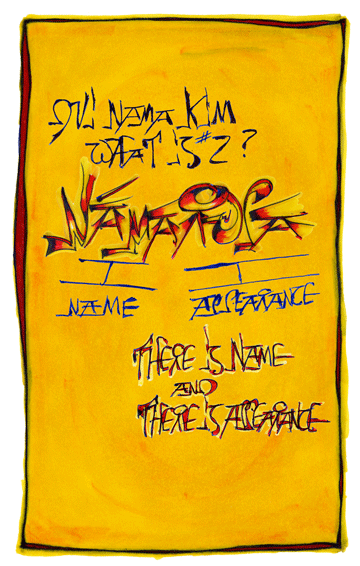 DVI NAMA KIM
WHAT IS #2 ?
NÁMARŪPA
NAME APPEARANCE
THERE IS NAME
AND
THERE IS APPEARANCE